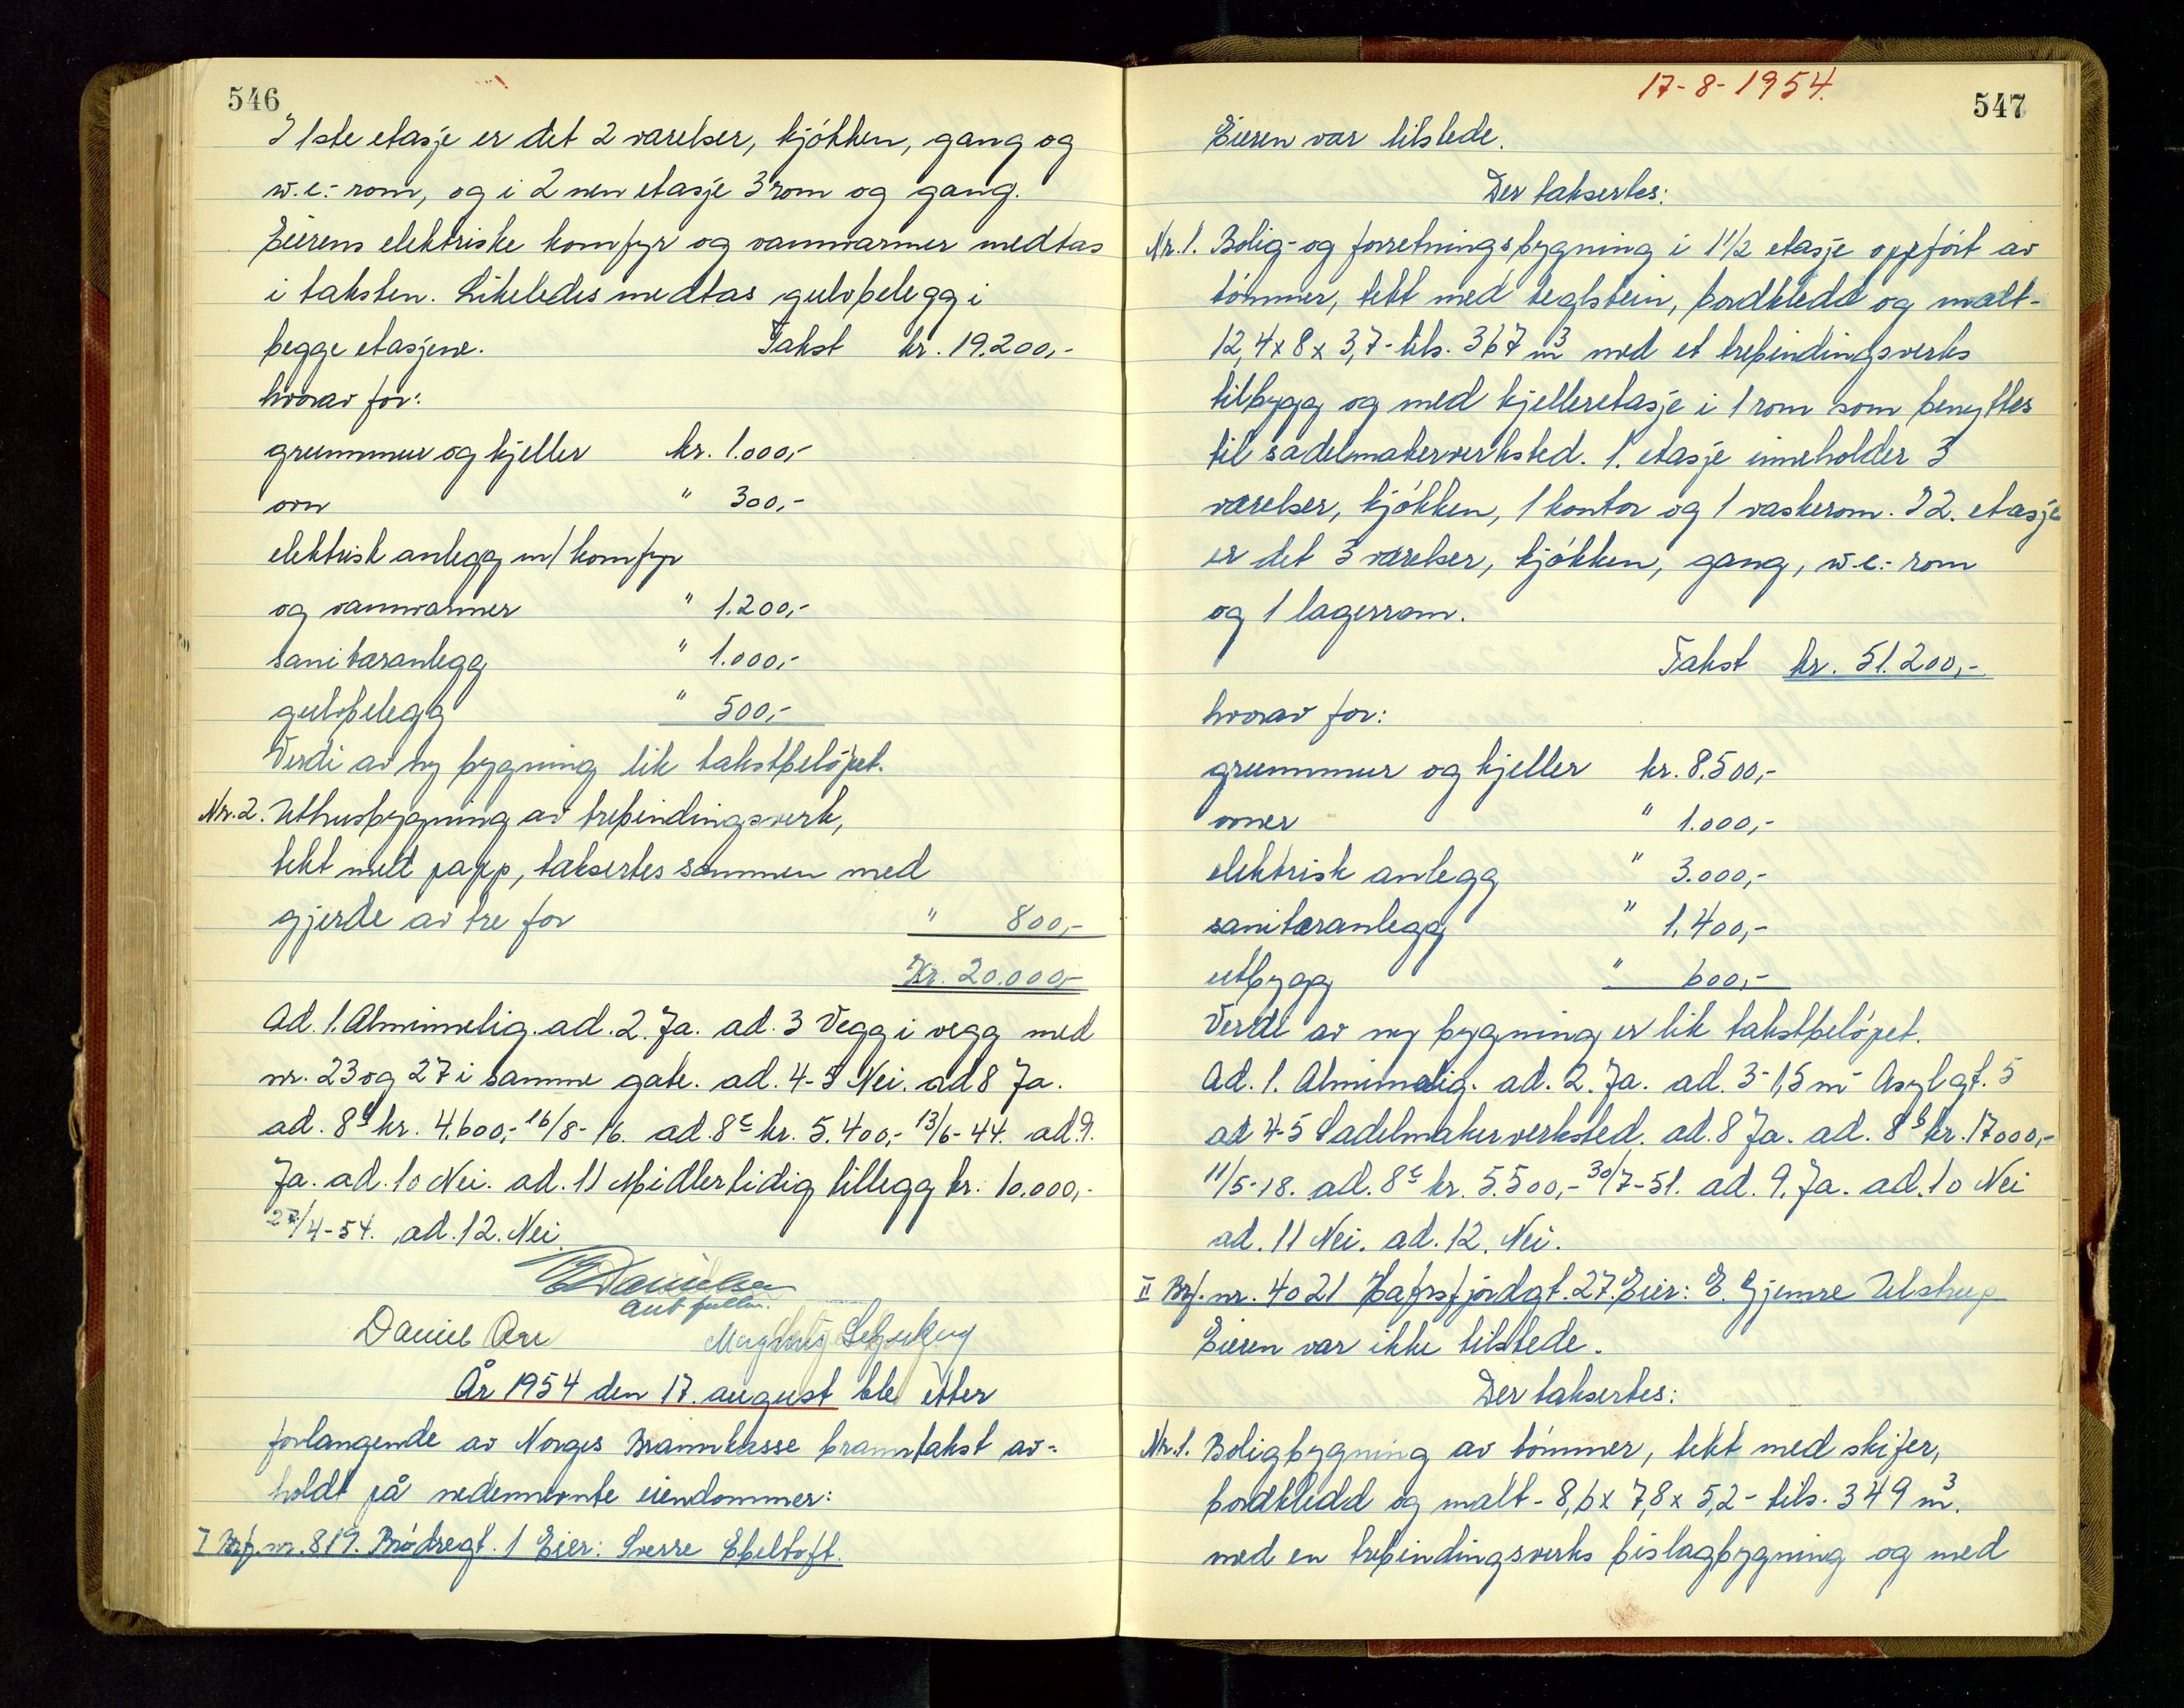 546
I 1ste etasje er det 2 værelser, kjøkken, gang og
w.c.- rom, og i 2 nen etasje 3 rom og gang.
Eierens elektriske komfyr og vannvarmer medtas
i taksten. Likeledes medtas gulvbelegg i
begge etasjene. Takst kr. 19.200,-
hvorav for:
grunnmur og kjeller kr. 1.000,-
ovn " 300,-
elektrisk anlegg m/ komfyr
og vannvarmer " 1.200,-
sanitæranlegg " 1.000,-
gulvbelegg " 500,-
Verdi av ny bygning lik takstbeløpet.
Nr. 2. Uthusbygning av trebindingsverk,
tekt med papp, taksertes sammen med
gjerde av tre for " 800,-
Kr. 20.000,-
Ad. 1. Alminnelig. ad. 2. Ja. ad. 3 Vegg i vegg med
nr. 23 og 27 i samme gate. ad. 4-5 Nei. ad 8 Ja.
ad. 8b kr. 4.600,- 16/8-16. ad. 8c kr. 5.400,- 13/6-44. ad. 9.
Ja. ad. 10 Nei. ad. 11 Midlertidig tillegg kr. 10.000,-
27/4-54. ad. 12. Nei.
Danielsen
Daniel Magnus
År 1954 den 17. august ble etter
forlangende av Norges Brannkasse branntakst av-
holdt på nedennevnte eiendommer:
I Brf. nr. 819. Brødregt. 1 Eier: Sverre Ebeltoft.
17-8-1954.
547
Eieren var tilstede.
Der taksertes:
Nr. 1. Bolig- og forretningsbygning i 1 1/2 etasje oppført av
tømmer, tekt med teglstein, bordkledd og malt-
12,4 x 8 x 3,7- tils. 367 m3 med et trebindingsverks
tilbygg og med kjelleretasje i 1 rom som benyttes
til sadelmakerverksted. 1. etasje inneholder 3
værelser, kjøkken, 1 kontor og 1 vaskerom. I 2. etasje
er det 3 værelser, kjøkken, gang, w.c.- rom
og 1 lagerrom.
Takst kr. 51.200,-
hvorav for:
grunnmur og kjeller kr. 8.500,-
ovner " 1.000,-
elektrisk anlegg " 3.000,-
sanitæranlegg " 1.400,-
utbygg " 600,-
Verdi av ny bygning er lik takstbeløpet.
Ad. 1. Alminnelig. ad. 2. Ja. ad. 3- 1,5 m- Asylgt. 5
ad 4-5 Sadelmakerverksted. ad. 8 Ja. ad. 8b kr. 17000,-
11/5-18. ad. 8c kr. 5.500,- 30/7-51. ad. 9. Ja. ad. 10 Nei
ad. 11 Nei. ad. 12. Nei.
II Brf. nr. 4021 Hafrsfjordgt. 27. Eier: E. Gjemre Ulstrup
Eieren var ikke tilstede.
Der taksertes:
Nr. 1. Boligbygning av tømmer, tekt med skifer,
bordkledd og malt- 8,6 x 7,8 x 5,2- tils. 349 m3.
med en trebindingsverks bislagbygning og med